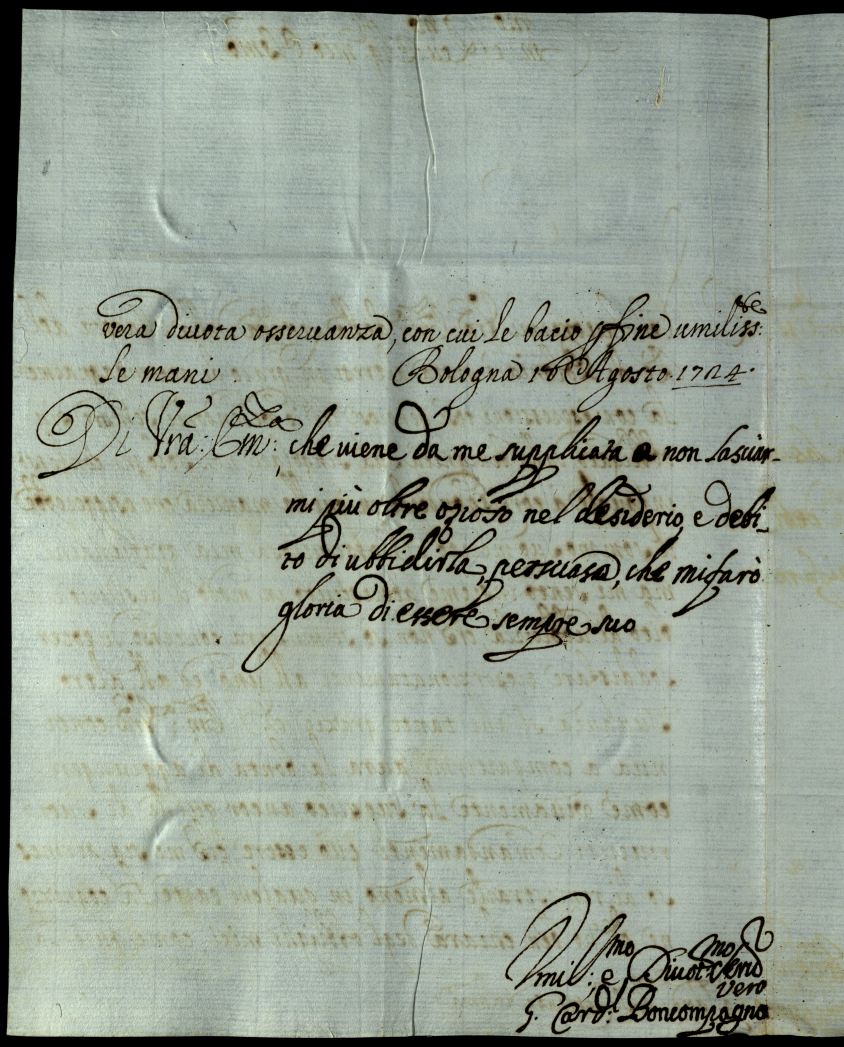 vera divota osservanza, con cui le bacio p fine umiliss:te
le mani. Bologna 16 Agosto 1724.
Di Vra: Em:za che viene da me supplicata a non lasciar-
mi più oltre ozioso nel desiderio, e debi-
to di ubbidirla, persuasa, che mi farò
gloria di essere sempre suo
Umil:mo e Divot:mo Serv
vero
G. Card: Boncompagno